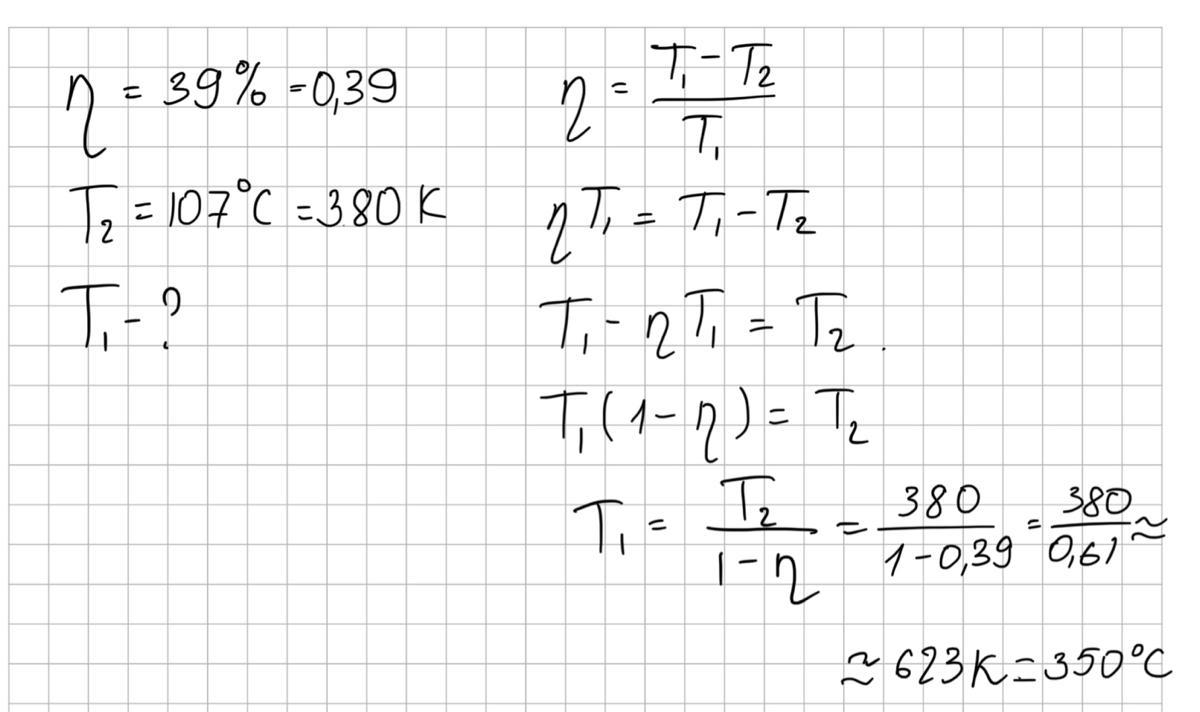 η = 39% = 0,39
T₂ = 107°C = 380 K
T₁ - ?
η = (T₁ - T₂) / T₁
ηT₁ = T₁ - T₂
T₁ - ηT₁ = T₂.
T₁(1 - η) = T₂
T₁ = T₂ / (1 - η) = 380 / (1 - 0,39) = 380 / 0,61 ≈
≈ 623 K = 350°C